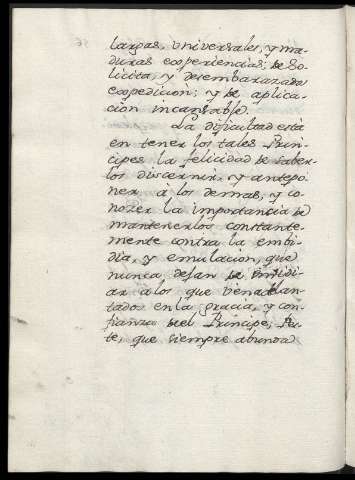 largas, Universales, y ma-
duras experiencias; de So-
licita, y desembarazada
expedicion; y de aplica-
cion incansable.
La dificultad está
en tener los tales Prin-
cipes la felicidad de saber-
los discernir, y antepo-
ner à los demas, y co-
nozer la importancia de
mantenerlos constante-
mente contra la embi-
dia, y emulacion, que
nunca dejan de embidi-
ar à los que ven adelan-
tados en la gracia, y con-
fianza del Principe; 
te, que siempre abunda